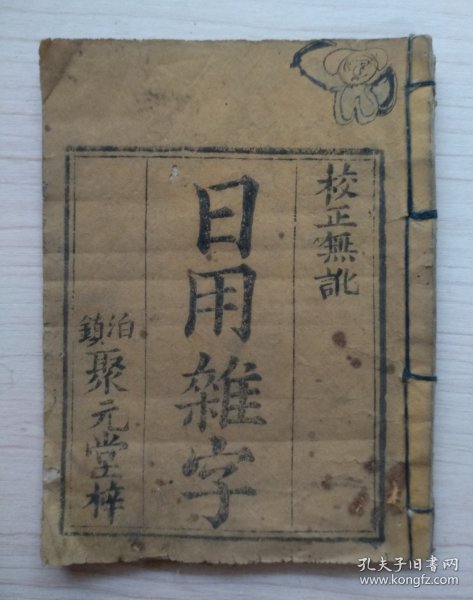 校正無訛
日用雜字
泊鎮聚元堂梓
孔夫子旧书网
www.kongfz.com